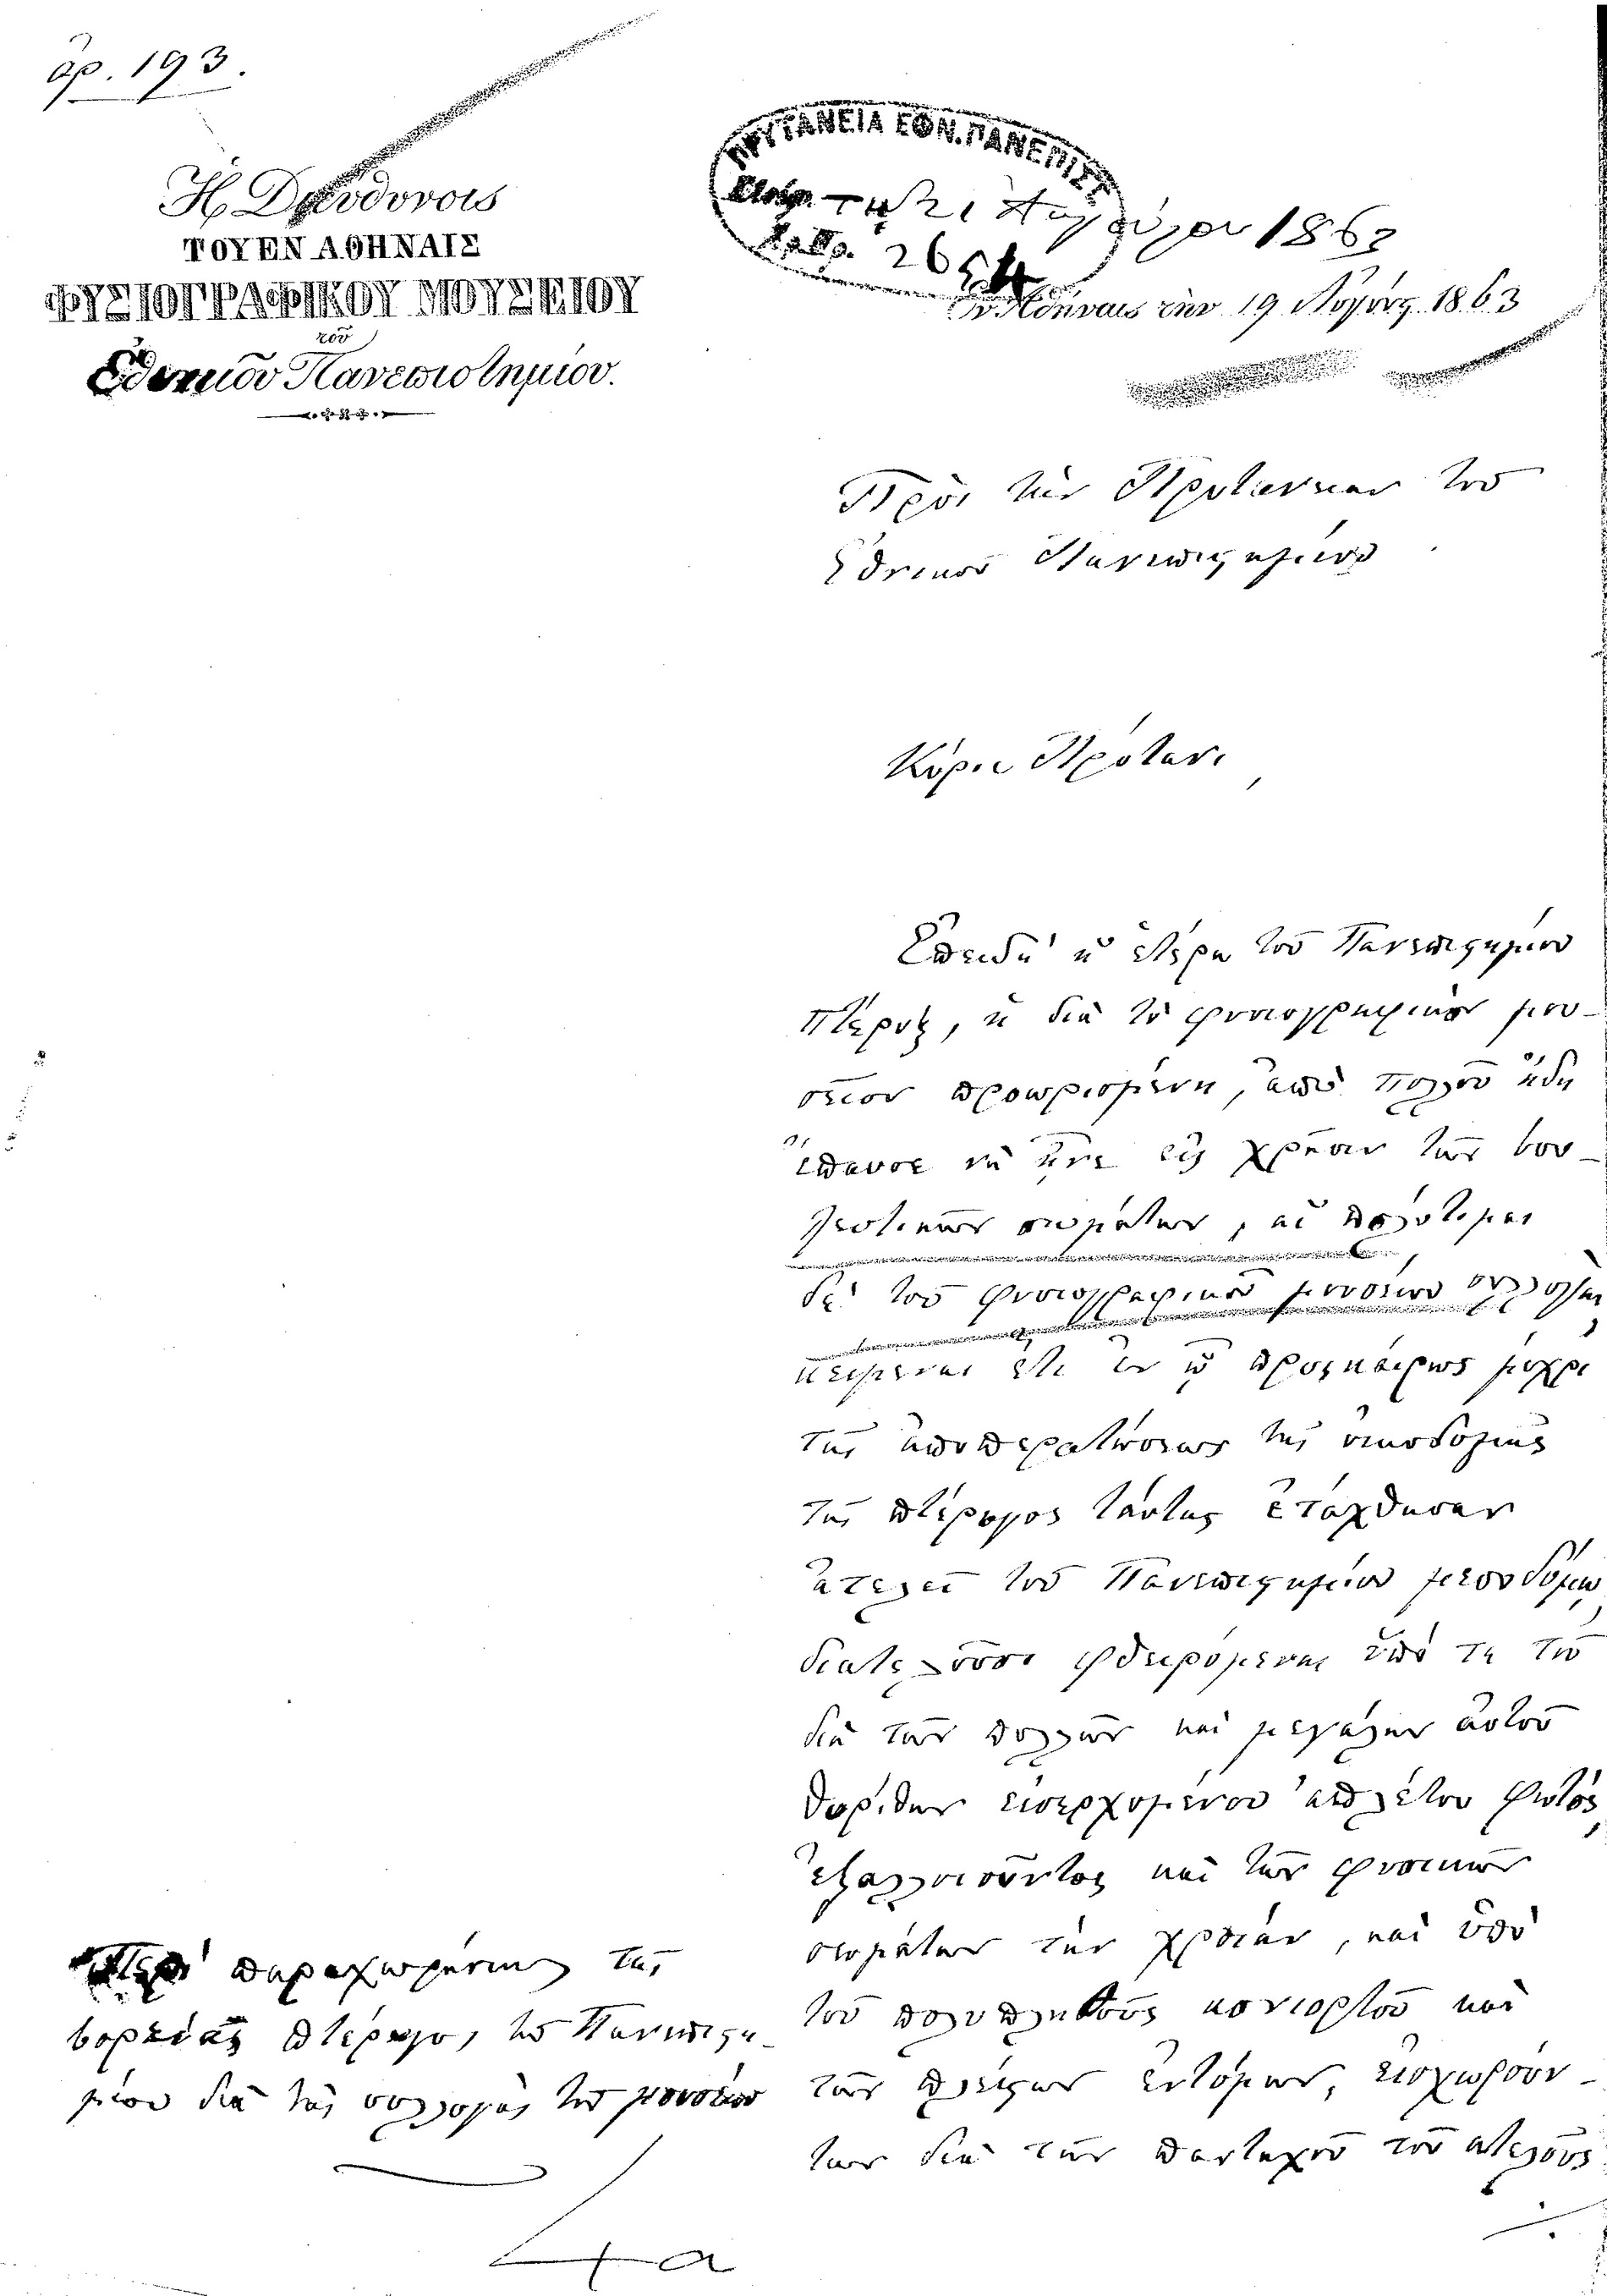 ἀρ. 193.
Ἡ Διεύθυνσις
ΤΟΥ ΕΝ ΑΘΗΝΑΙΣ
ΦΥΣΙΟΓΡΑΦΙΚΟΥ ΜΟΥΣΕΙΟΥ
τοῦ
Ἐθνικοῦ Πανεπιστημίου.
ΠΡΥΤΑΝΕΙΑ ΕΘΝ. ΠΑΝΕΠΙΣΤ
τῇ 21 Αὐγούστου 1863
2654
Ἐν Ἀθήναις τὴν 19 Αὐγούστ. 1863
Πρὸς τὴν Πρυτανείαν τοῦ
Ἐθνικοῦ Πανεπιστημίου
Κύριε Πρύτανι,
Ἐπειδὴ ἡ ἑτέρα τοῦ Πανεπιστημίου
πτέρυξ, ἡ διὰ τὸ φυσιογραφικὸν μου-
σεῖον προωρισμένη, ἀπὸ πολλοῦ ἤδη
ἔπαυσε νὰ ἦνε εἰς χρῆσιν τῶν βου-
λευτικῶν σωμάτων, αἱ πολύτιμοι
δὲ τοῦ φυσιογραφικοῦ μουσείου συλλογαὶ,
κείμεναι ἔτι ἐν ᾧ προσκαίρως μέχρι
τῆς ἀποπερατώσεως τῆς οἰκοδομῆς
τῆς πτέρυγος ταύτης ἐτάχθησαν
ἀτελεῖ τοῦ Πανεπιστημίου μεσοδόμῳ,
διατελοῦσι φθειρόμεναι ὑπό τε τοῦ
διὰ τῶν πολλῶν καὶ μεγάλων αὐτοῦ
θυρίδων εἰσερχομένου ἀπλέτου φωτός,
ἐξαλλοιοῦντος καὶ τῶν φυσικῶν
σωμάτων τὴν χροιὰν, καὶ ὑπὸ
τοῦ πολυπληθοῦς κονιορτοῦ καὶ
τῶν πλείστων ἐντόμων, εἰσχωρούν-
των διὰ τῶν πανταχοῦ τοῦ ἀτελοῦς
Περὶ παραχωρήσεως τῆς
βορείας πτέρυγος τοῦ Πανεπιστη-
μίου διὰ τὰς συλλογὰς τοῦ μουσείου